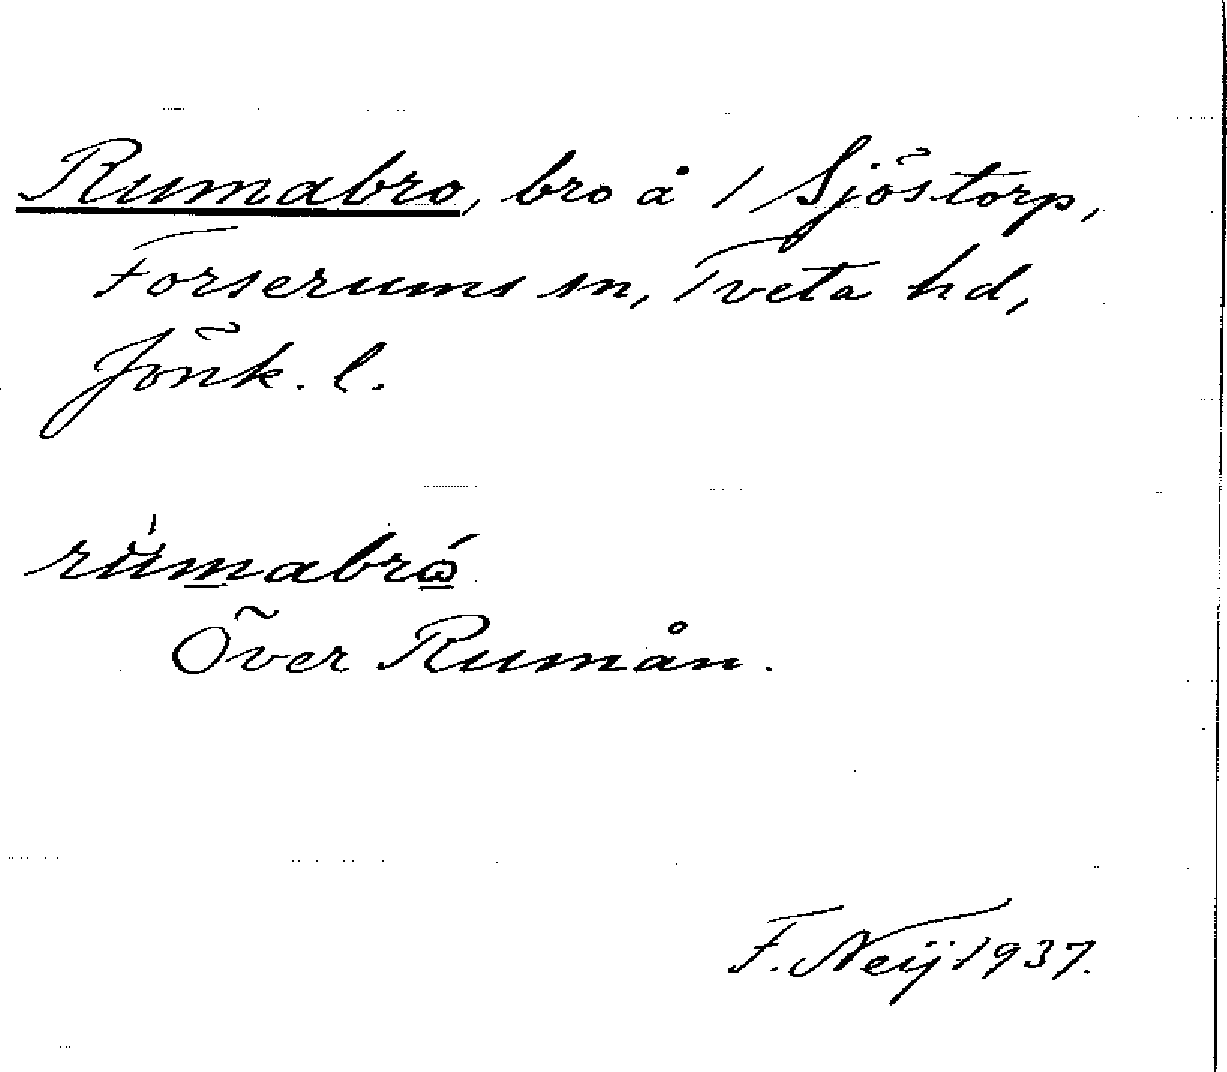 Rumabro, bro å 1 Sjöstorp,
Forserums sn, Tveta hd,
Jönk. l.
rùmabró
Över Rumån.
F. Neij 1937.